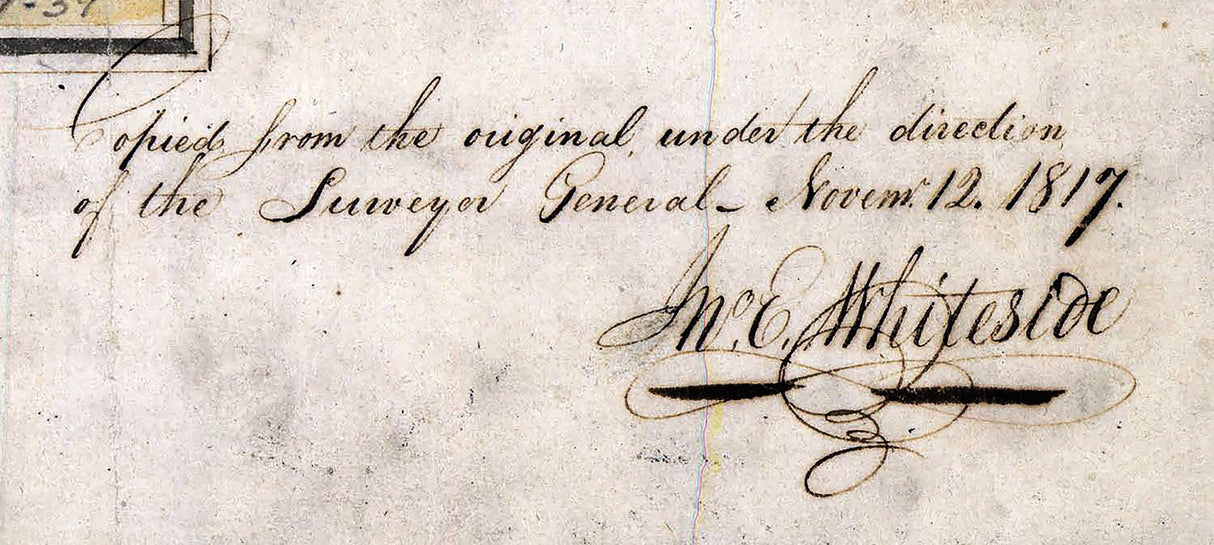 Copied from the original, under the direction
of the Surveyor General – Novemr. 12. 1817.
Jno. E. Whiteside